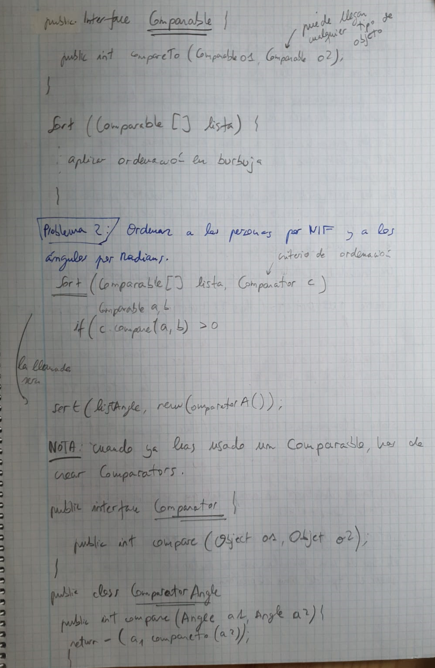 public Interface Comparable {
puede llegar
cualquier tipo de
objeto
public int compareTo (Comparable o1, Comparable o2);
}
Sort (Comparable [] lista) {
: aplicar ordenación en burbuja
}
Problema 2: Ordenar a las personas por NIF y a los
ángulos por radians.
criterio de ordenación
Sort (Comparable [] lista, Comparator c)
Comparable a, b
if (c.compare(a, b) > 0
la llamada
sería
sort (listAngle, new Comparator A());
NOTA: cuando ya has usado un Comparable, has de
crear Comparators.
public interface Comparator {
public int compare (Object o1, Objet o2);
}
public class Comparator Angle
public int compare (Angle a1, Angle a2) {
return - (a1 compareto (a2));
}